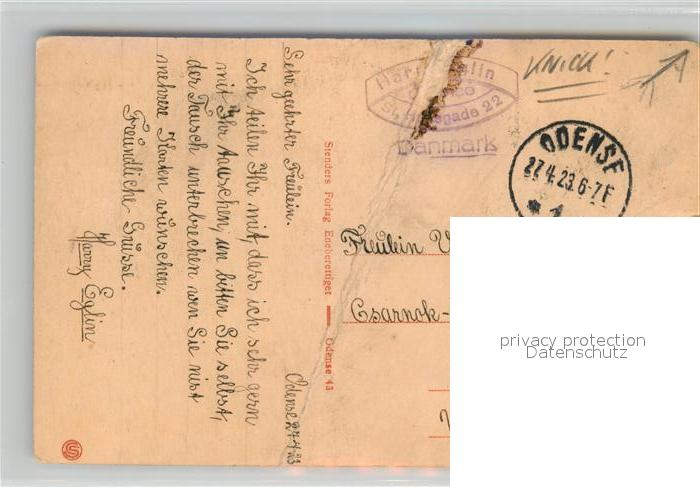 Odense 27.4.23
Sehr geehrter Freülein.
Ich teilen Ihr mit, dass ich sehr gern
mit Ihr tauschen, un bitten Sie selbst,
der Tausch unterbrechen wen Sie nist
mehrere Karten wünschen.
Freündliche Grüsse.
Harry Eglin
Stenders Forlag Eneberettiget Odense 43
Harry Eglin
gade 22
Danmark
KNICK!
ODENSE
27.4.23.6-7F
* 1
Freülein
Csarnok-
privacy protection
Datenschutz